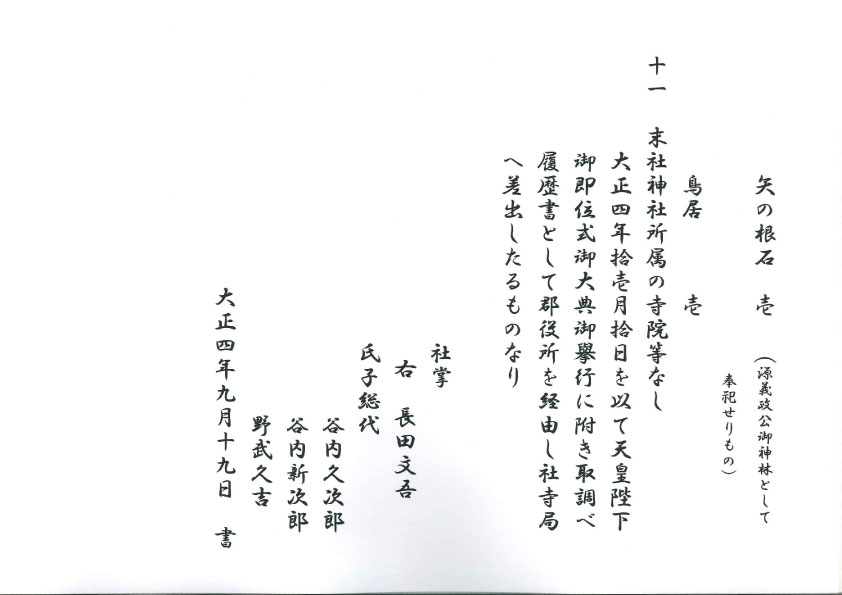 矢の根石　壱　（源義政公御神体として
奉祀せりもの）
鳥居　　壱
十一　末社神社所属の寺院等なし
大正四年拾壱月拾日を以て天皇陛下
御即位式御大典御擧行に附き取調べ
履歴書として郡役所を経由し社寺局
へ差出したるものなり
社掌
右　長田文吾
氏子総代
谷内久次郎
谷内新次郎
野武久吉
大正四年九月十九日　書